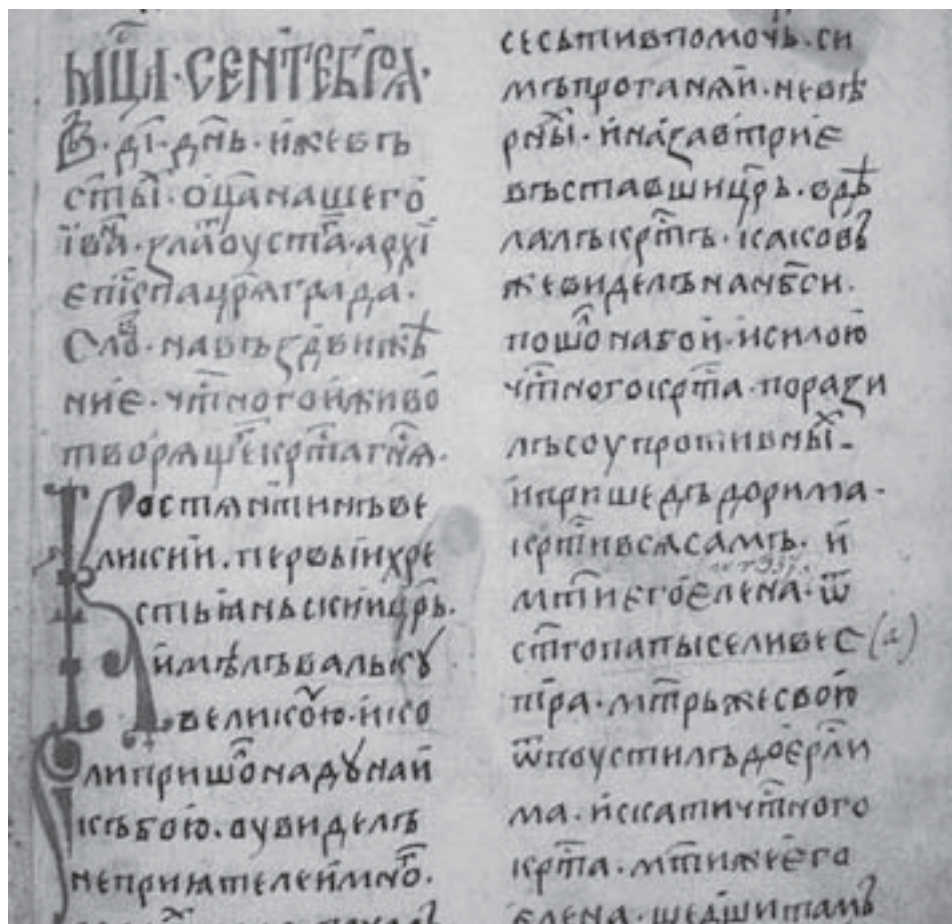 мⷭ҇ца · сентебрѧ ·
в · д҃і · дн҃ь · иже въ
ст҃ы · ѻц҃а нашего
їѡⷩ҇а · злаⷮ҇оуста · архї
єпⷭ҇кпа цр҃ѧграда ·
слоⷡ҇ · на въздвиже
ниє · чтⷭ҇ного и живо
творѧщеⷢ҇ крⷭ҇та гнⷭ҇ѧ ·
костѧнтинъ ве
ликии · первыи хре
стьꙗньскии цр҃ь ·
имѣлъ валъкꙋ
великоую · и ко
ли пришоⷧ҇ на дꙋнаи
къ бою · оувиделъ
неприꙗтелеи мноⷢ҇ ·
се сѧти в помочь · си
мъ проганѧи · невѣ
рныⷯ · и назавтриє
въставши цр҃ь · вдѣ
лалъ крⷭ҇тъ · каковъ
же виделъ на нб҃си ·
пошоⷧ҇ на бои · и силою
чтⷭ҇ного крⷭ҇та · порази
лъ соупротивныⷯ ·
и пришедъ до рима ·
крⷭ҇тивсѧ самъ · и
мт҃и его єлена · ѿ
ст҃го папы селивес (а)
тра · мт҃рь же свою
ѿпоустилъ до єрⷭ҇ли
ма · искати чтⷭ҇ного
крⷭ҇та · мт҃и же єго
єлена · шедши тамъ